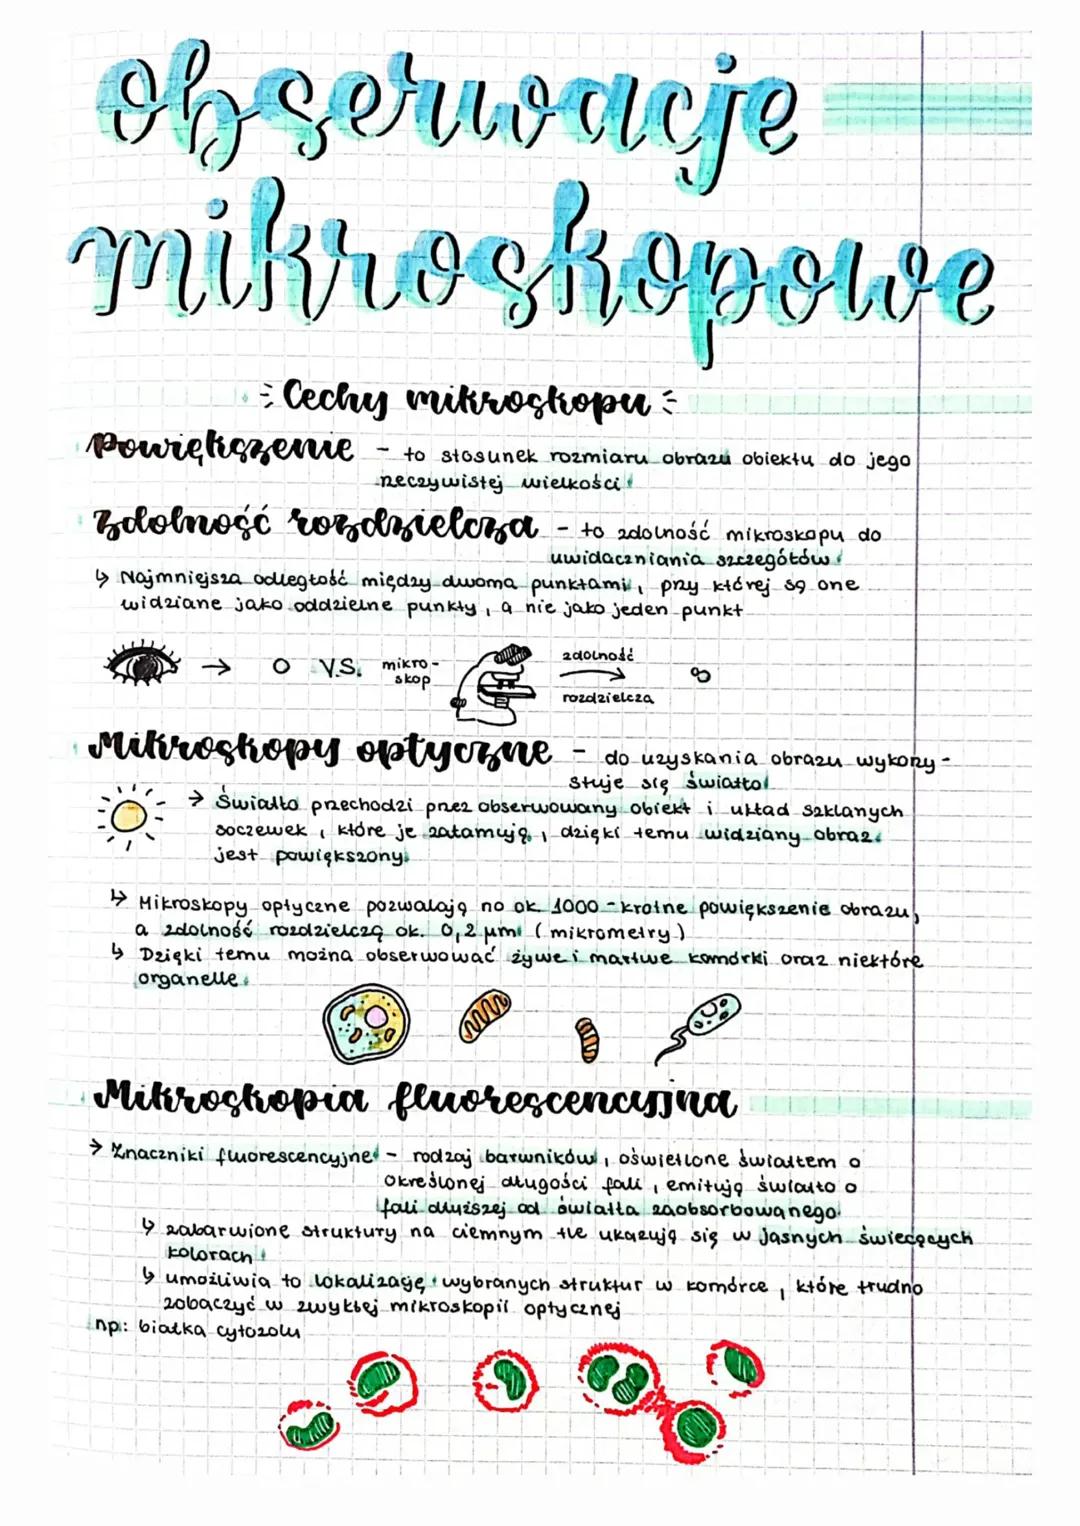 obserwacje
mikroskopowe
Cechy mikroskopu
Powiększenie - to stosunek rozmiaru obrazu obiektu do jego
rzeczywistej wielkości
Zdolność rozdzielcza - to zdolność mikroskopu do
uwidaczniania szczegółów
↳ Najmniejsza odległość między dwoma punktami, przy której są one
widziane jako oddzielne punkty, a nie jako jeden punkt
→ O V.S. mikro-
skop
zdolność
rozdzielcza
Mikroskopy optyczne - do uzyskania obrazu wykorzy-
stuje się światło
→ Światło przechodzi przez obserwowany obiekt i układ szklanych
soczewek, które je załamują, dzięki temu widziany obraz
jest powiększony
↳ Mikroskopy optyczne pozwalają na ok. 1000-krotne powiększenie obrazu,
a zdolność rozdzielczą ok. 0,2 µm (mikrometry)
↳ Dzięki temu można obserwować żywe i martwe komórki oraz niektóre
organelle
Mikroskopia fluorescencyjna
→ Znaczniki fluorescencyjne - rodzaj barwników, oświetlone światłem o
określonej długości fali, emitują światło o
fali dłuższej od światła zaobsorbowanego
↳ zabarwione struktury na ciemnym tle ukazują się w jasnych świecących
kolorach
↳ umożliwia to lokalizację wybranych struktur w komórce, które trudno
zobaczyć w zwykłej mikroskopii optycznej
np.: białka cytozolu